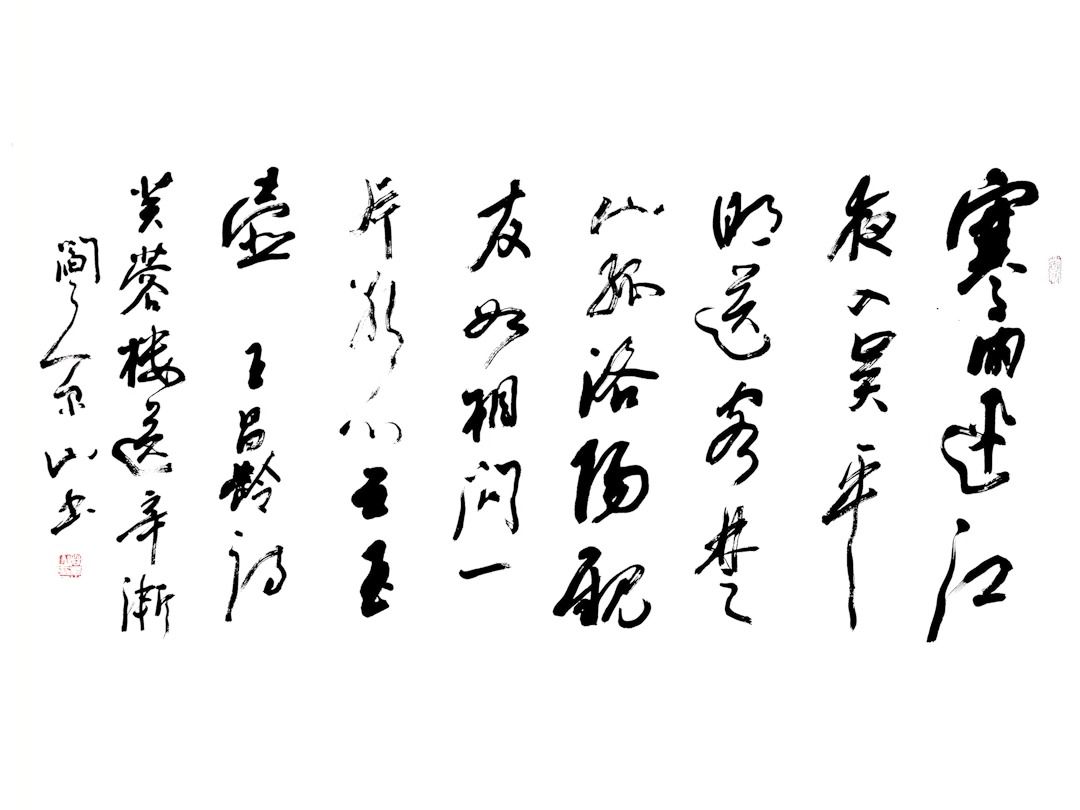 寒雨連江
夜入吴平
明送客楚
山孤洛陽親
友如相問一
片冰心在玉
壺 王昌齡詩
芙蓉楼送辛漸
山书